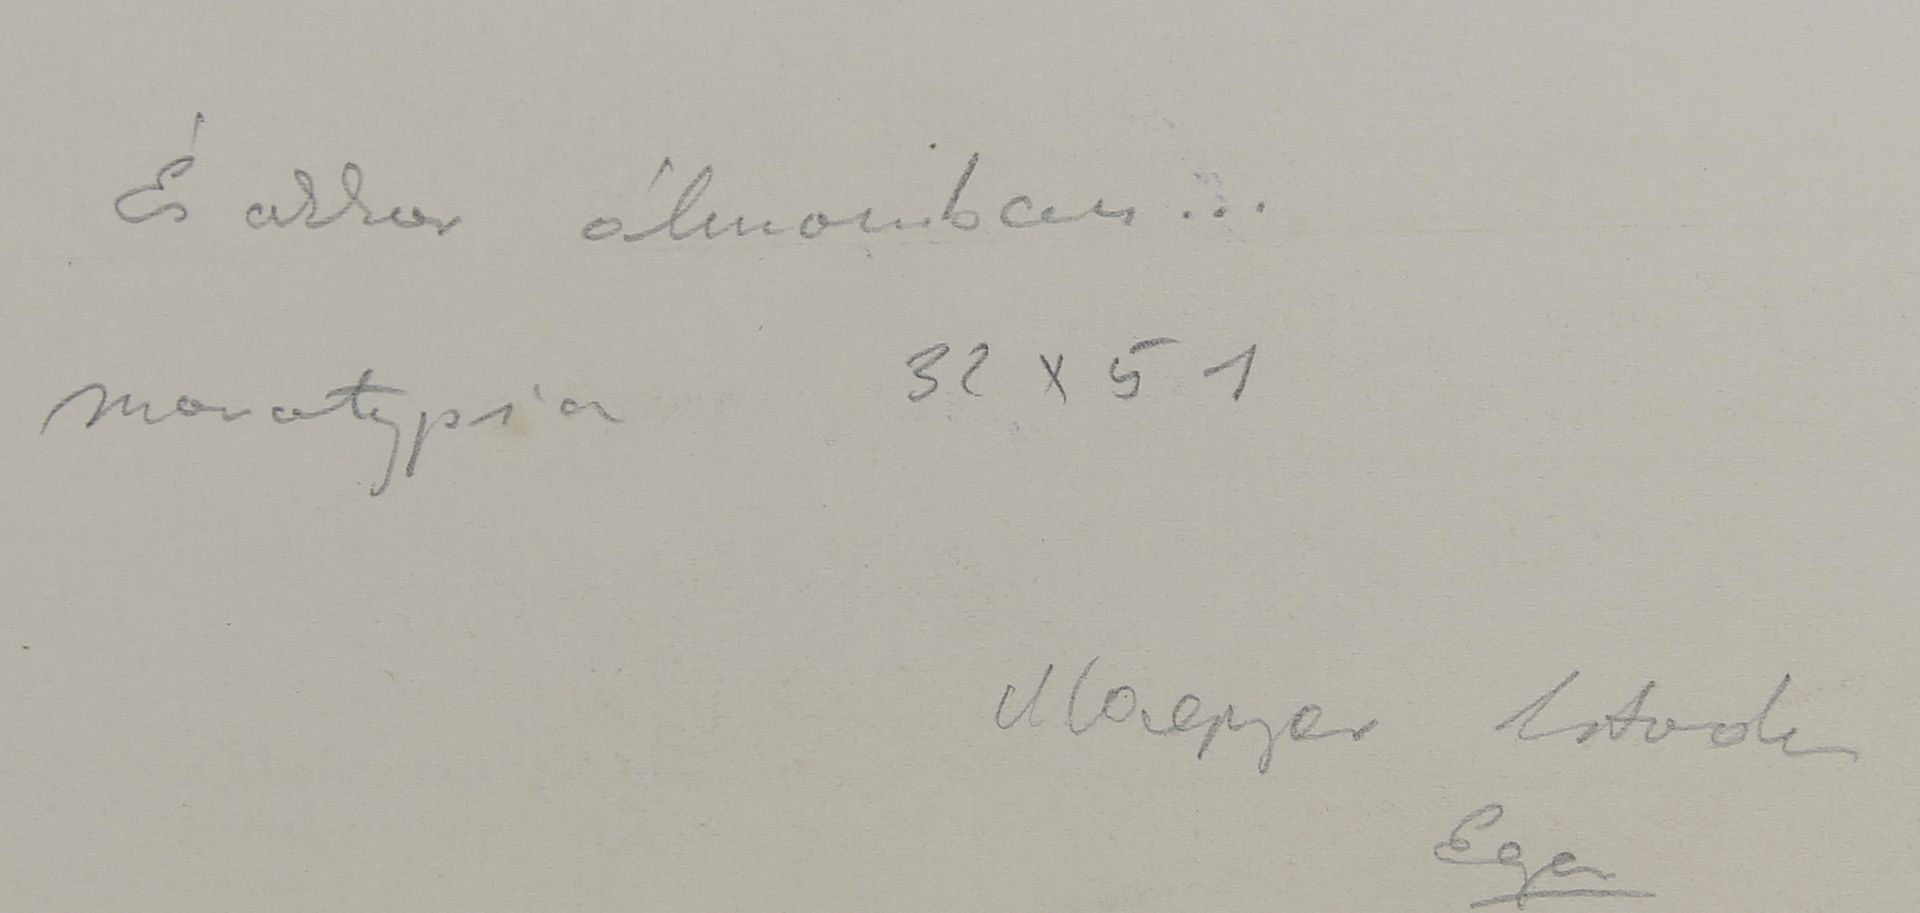 És akkor álmomban...
monotypia 32 x 51
Magyar István
Eger